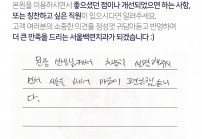 본원을 이용하시면서 좋으셨던 점이나 개선되었으면 하는 사항,
또는 칭찬하고 싶은 직원이 있으시다면 알려주세요.
고객 여러분의 소중한 의견을 정성껏 귀담아듣고 반영하여
더 큰 만족을 드리는 서울백련치과가 되겠습니다 :)
원장 선생님께서 차분히 설명해주시
면서 치료 해주셔서 마음이 편안했습니
다.